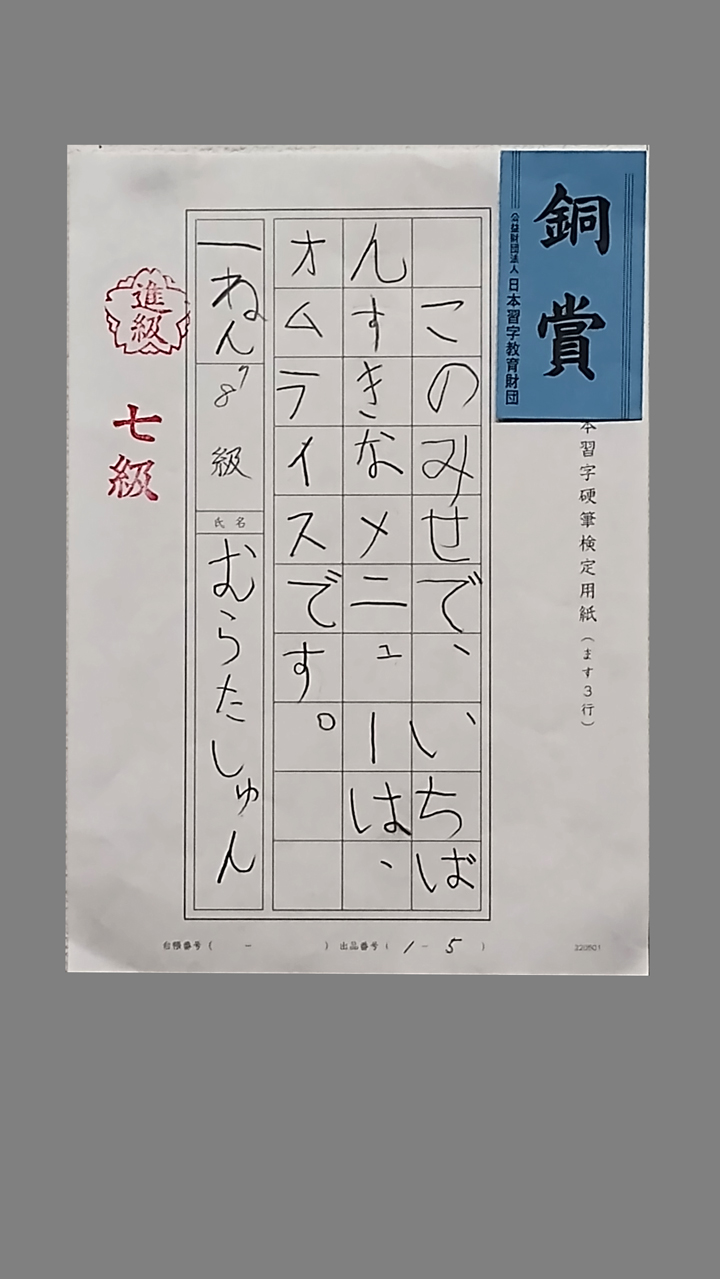 銅賞
公益財団法人 日本習字教育財団
本習字硬筆検定用紙(ます3行)
このみせで、いちば
んすきなメニューは、
オムライスです。
一ねん
8級
氏名
むらたしゅん
進級
七級
台帳番号( - ) 出品番号(1-5)